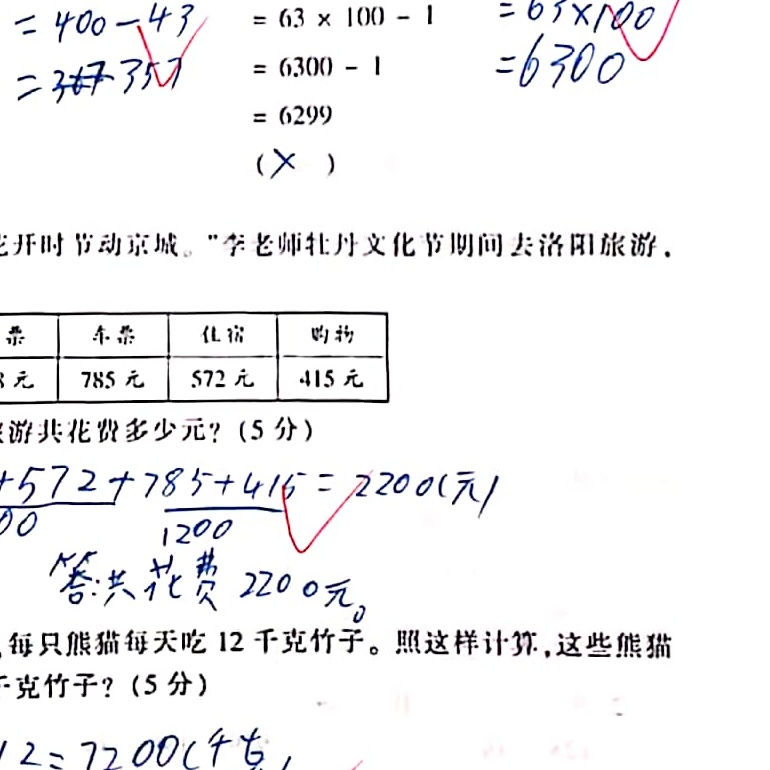 = 400 - 43
= 63 × 100 - 1
= 63×100
= 357
= 6300 - 1
= 6300
= 6299
(×)
开时节动京城。"李老师牡丹文化节期间去洛阳旅游,
票 车票 住宿 购物
元 785 元 572 元 415 元
游共花费多少元? (5 分)
+572+785+415 = 2200(元)
00 1200
答:共花费 2200元。
,每只熊猫每天吃 12 千克竹子。照这样计算,这些熊猫
千克竹子? (5 分)
12=7200(千克